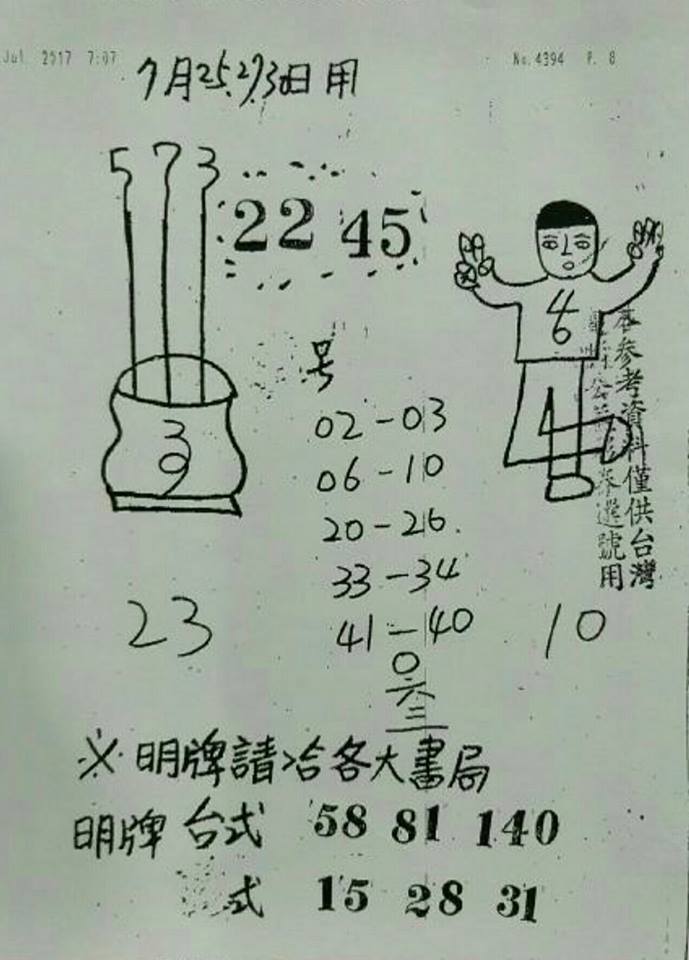 Jul. 2517 7:07
No.4394 P. 8
7月25.27.30日用
5 7 3
22 45
4
6
3
9
号
02-03
06-10
20-26
33-34
41-40
0
六
三
23
10
本參考資料僅供台灣
選號用
※明牌請洽各大書局
明牌 台式 58 81 140
式 15 28 31